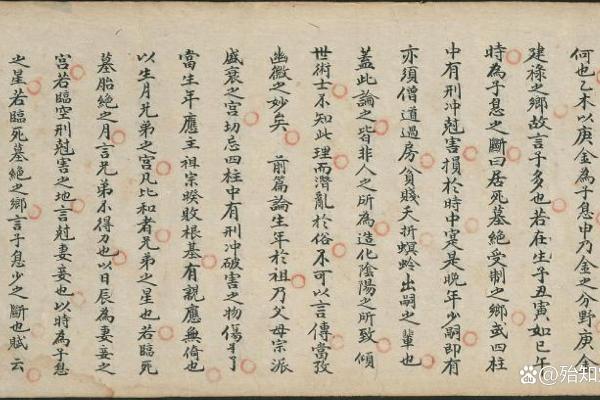 何也乙木以庚金為子息申乃金之分野庚金
建祿之鄉故言子多也若在生子丑寅如巳午
時為子息之斷曰居死墓絕受制之鄉或四柱
中有刑冲尅害損於時中寔是晚年少嗣即有
亦須僧道過房貧賤夭折螟蛉出嗣之輩也
蓋此論之皆非人之所為造化陰陽之所致傾
世術士不知此理而潛亂於俗不可以言傳當孜
幽微之妙矣 前篇論生年於祖乃父母宗派
盛衰之宮切忌四柱中有刑冲破害之物傷于了
當生年應主祖宗暌敗根基有親應無倚也
以生月兄弟之宮凡比和者兄弟之星也若臨死
墓胎絕之月言兄弟不得力也以日辰為妻妾之
宮若臨空刑尅害之地言尅妻妾也以時為子息
之星若臨死墓絕之鄉言子息少之斷也賦云
@殆知